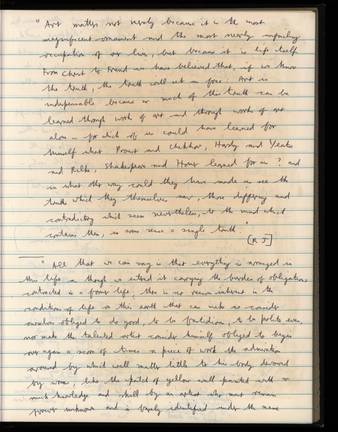 "Art matters not merely because it is the most
magnificent ornament and the most nearly unfailing
occupation of our lives, but because it is life itself.
From Christ to Freud we have believed that, if we know
the truth, the truth will set us free: Art is
indispensable because so much of this truth can be
learned through works of art and through works of art
alone — for which of us could have learned for
himself what Proust and Chekhov, Hardy and Yeats
and Rilke, Shakespeare and Homer learned for us? and
in what other way could they have made us see the
truths which they themselves saw, those differing and
contradictory truths which seem nevertheless, to the mind which
contains them, in some sense a single truth."
[R J]
"All that we can say is that everything is arranged in
this life as though we entered it carrying the burden of obligations
contracted in a former life; there is no reason inherent in the
conditions of life on this earth that can make us consider
ourselves obliged to do good, to be fastidious, to be polite even,
nor make the talented artist consider himself obliged to begin
over again a score of times a piece of work the admiration
aroused by which will matter little to his body devoured
by worms, like the patch of yellow wall painted with so
much knowledge and skill by an artist who must remain
for ever unknown and is barely identified under the name